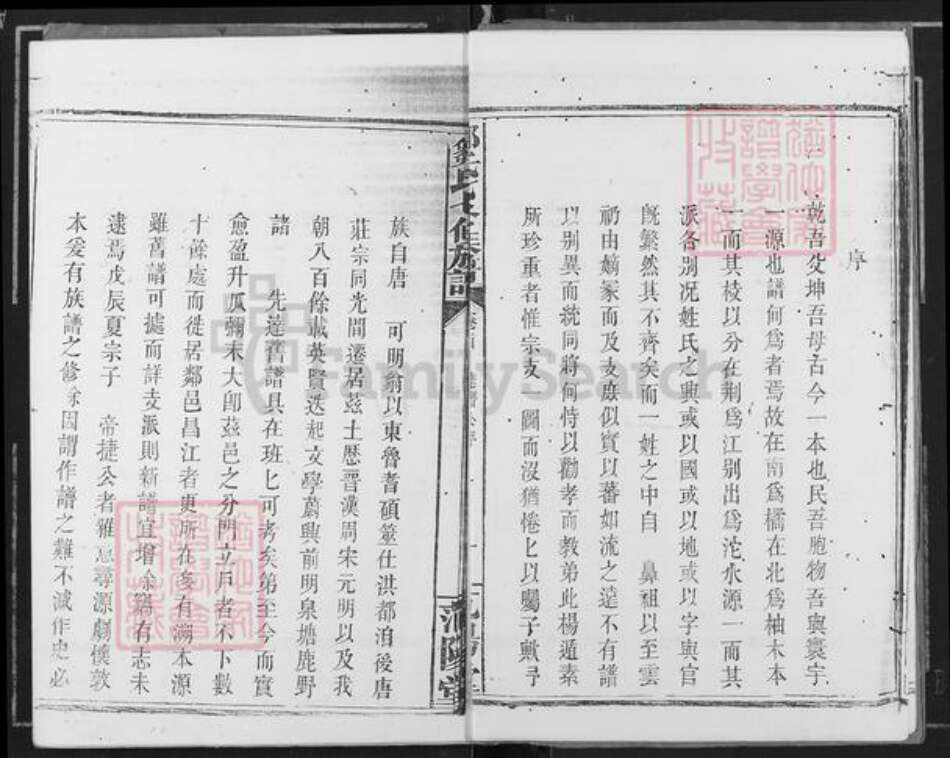 序
乾吾父坤吾母古今一本也民吾胞物吾與寰宇
一源也譜何爲者焉故在南爲橘在北爲柚木本
一而其棱以分在荆爲江别出爲沱水源一而其
派各别况姓氏之興或以國或以地或以字與官
旣繁然其不齊矣而一姓之中自 鼻祖以至雲
礽由嫡冢而及支庶似實以蕃如流之遠不有譜
以别異而統同將何恃以勸孝而教弟此楊遁素
所珍重者惟宗支一圖而沒猶惓匕以囑子歟
氏 修族譜
族自唐 可明翁以東魯耆碩筮仕洪都洎後唐
莊宗同光間遷居茲土歷晋漢周宋元明以及我
朝八百餘載英賢迭起文學蔚興前明泉塘鹿野
諸 先達舊譜具在班匕可考矣第至今而實
愈盈升瓜彌末大卽茲邑之分門立戶者不下數
十餘處而徙居鄰邑昌江者更所在多有溯本源
雖舊譜可據而詳支派則新譜宜增余竊有志未
逮焉戊辰夏宗子 帝捷公者雅意尋源劇懷敦
本爰有族譜之修余因謂作譜之難不減作史必
堂
FamilySearch